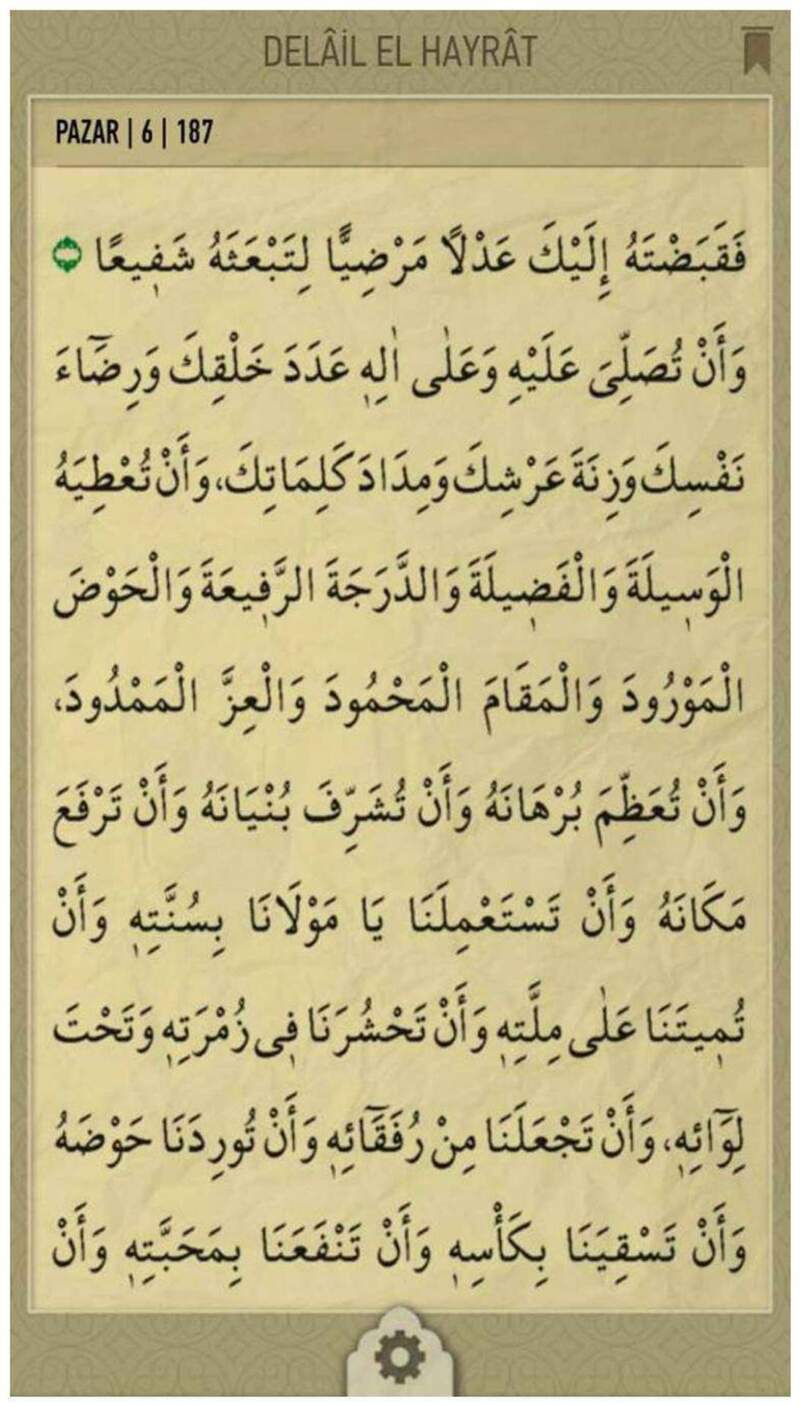 DELÂİL EL HAYRÂT
PAZAR | 6 | 187
فَقَبَضْتَهُ إِلَيْكَ عَدْلًا مَرْضِيًّا لِتَبْعَثَهُ شَفٖيعًا
وَأَنْ تُصَلِّىَ عَلَيْهِ وَعَلٰى اٰلِهٖ عَدَدَ خَلْقِكَ وَرِضَٓاءَ
نَفْسِكَ وَزِنَةَ عَرْشِكَ وَمِدَادَ كَلِمَاتِكَ، وَأَنْ تُعْطِيَهُ
الْوَسٖيلَةَ وَالْفَضٖيلَةَ وَالدَّرَجَةَ الرَّفٖيعَةَ وَالْحَوْضَ
الْمَوْرُودَ وَالْمَقَامَ الْمَحْمُودَ وَالْعِزَّ الْمَمْدُودَ،
وَأَنْ تُعَظِّمَ بُرْهَانَهُ وَأَنْ تُشَرِّفَ بُنْيَانَهُ وَأَنْ تَرْفَعَ
مَكَانَهُ وَأَنْ تَسْتَعْمِلَنَا يَا مَوْلَانَا بِسُنَّتِهٖ وَأَنْ
تُمٖيتَنَا عَلٰى مِلَّتِهٖ وَأَنْ تَحْشُرَنَا فٖى زُمْرَتِهٖ وَتَحْتَ
لِوَٓائِهٖ، وَأَنْ تَجْعَلَنَا مِنْ رُفَقَٓائِهٖ وَأَنْ تُورِدَنَا حَوْضَهُ
وَأَنْ تَسْقِيَنَا بِكَأْسِهٖ وَأَنْ تَنْفَعَنَا بِمَحَبَّتِهٖ وَأَنْ